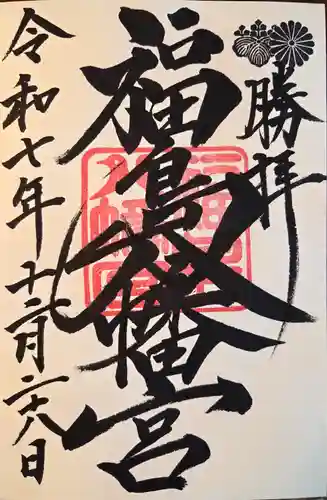 勝拝
福島八幡宮
令和七年十二月二十八日